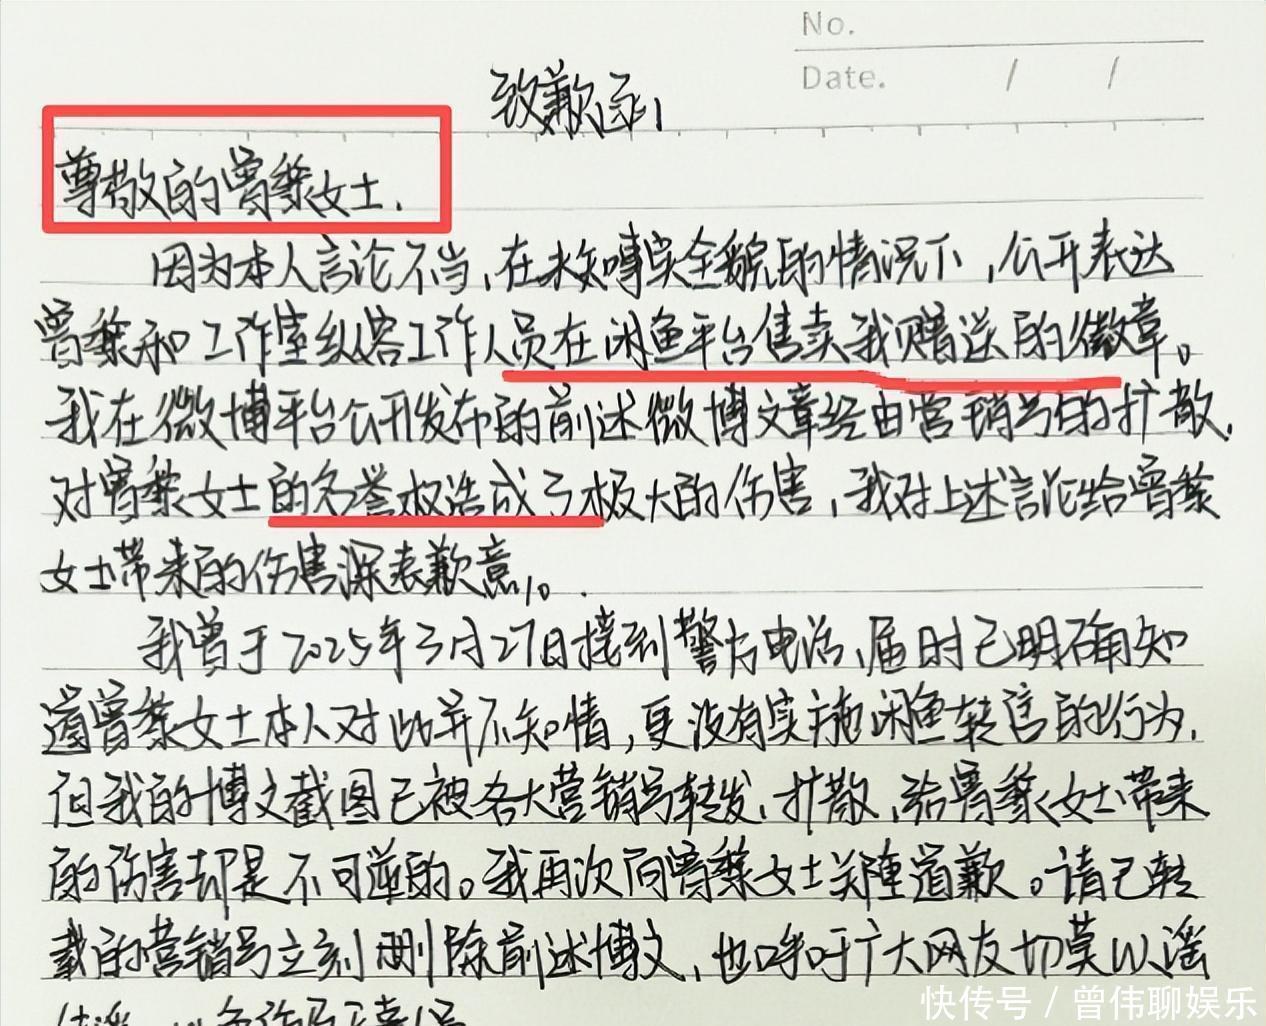 No.
Date. / /
致歉函
尊敬的曾黎女士,
因为本人言论不当,在未知事实全貌的情况下,公开表达
曾黎和工作室纵容工作人员在闲鱼平台售卖我赠送的徽章。
我在微博平台公开发布的前述微博文章经由营销号的扩散,
对曾黎女士的名誉权造成了极大的伤害,我对上述言论给曾黎
女士带来的伤害深表歉意。
我曾于2025年3月27日接到警方电话,届时已明确知
道曾黎女士本人对此并不知情,更没有实施闲鱼转卖的行为,
但我的博文截图已被各大营销号转发,扩散,给曾黎女士带来
的伤害却是不可逆的。我再次向曾黎女士郑重道歉。请已转
载的营销号立刻删除前述博文,也呼吁广大网友切莫以谣
传谣
快传号 / 曾伟聊娱乐